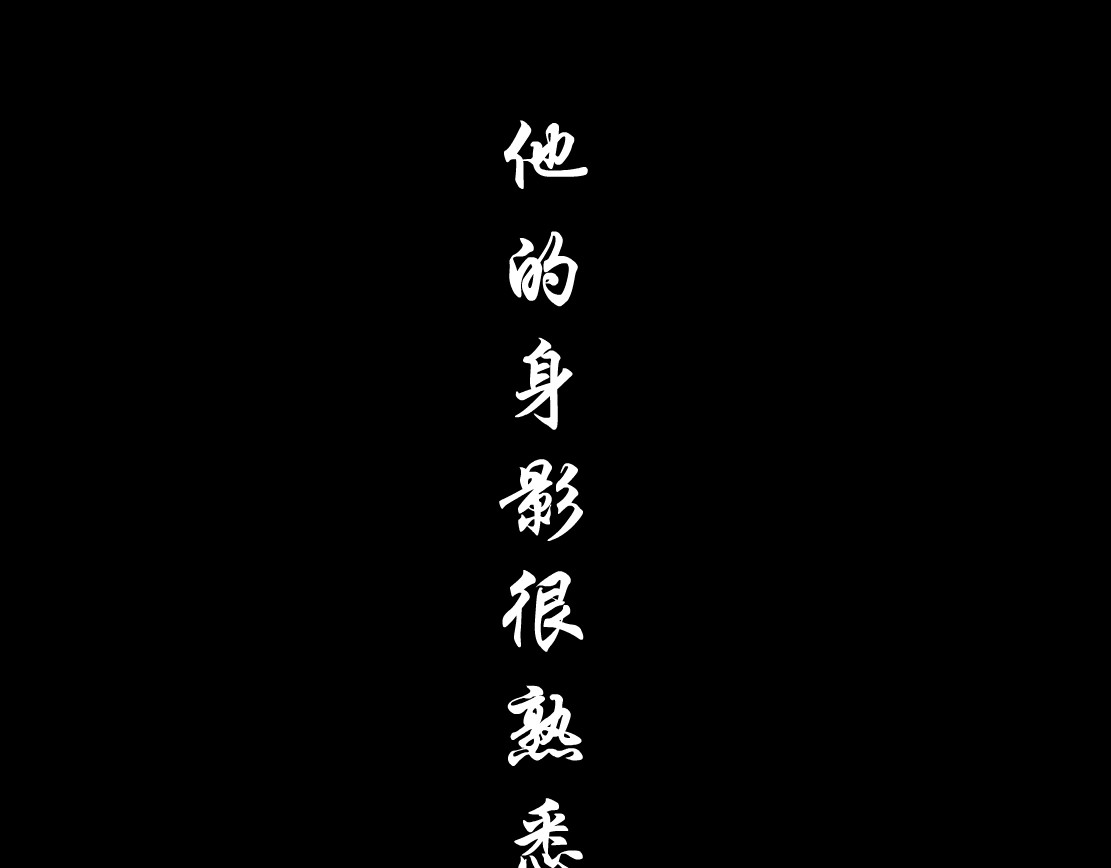 他的身影很熟悉